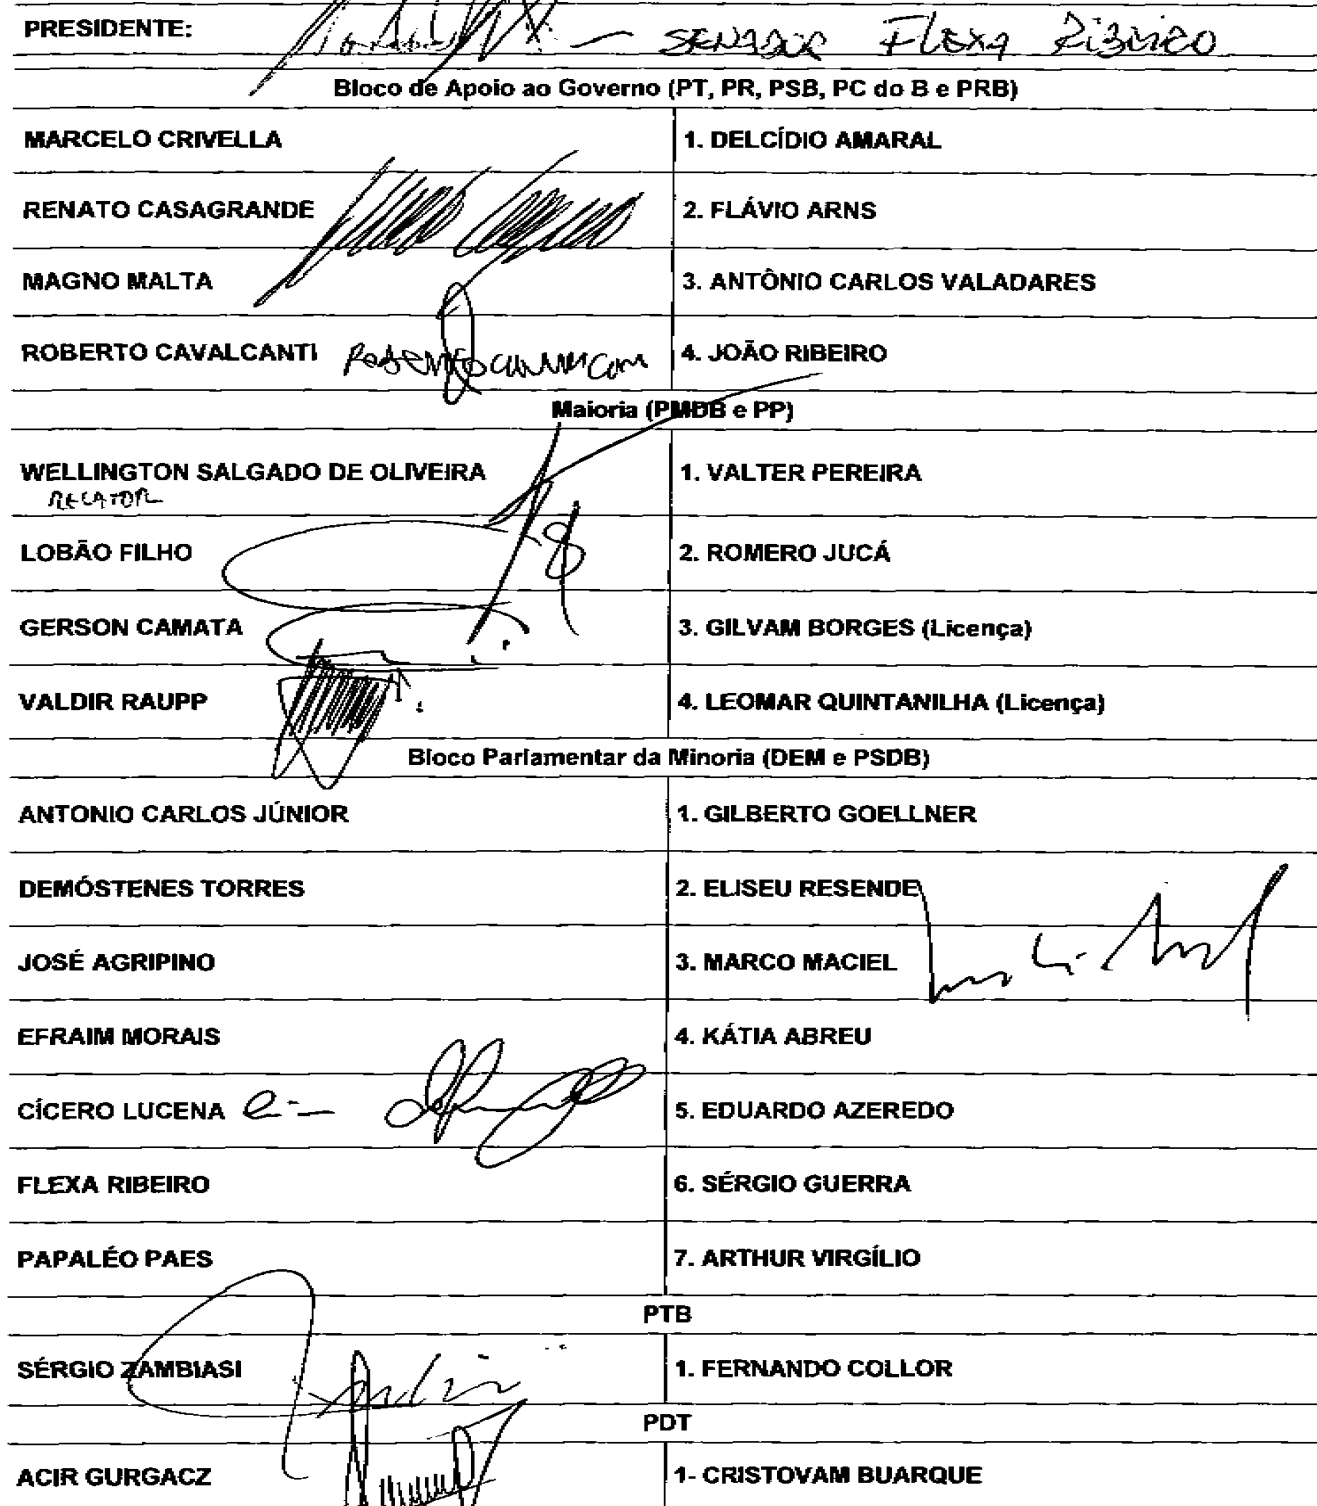 PRESIDENTE: SENADOR FLEXA RIBEIRO
Bloco de Apoio ao Governo (PT, PR, PSB, PC do B e PRB)
MARCELO CRIVELLA 1. DELCÍDIO AMARAL
RENATO CASAGRANDE 2. FLÁVIO ARNS
MAGNO MALTA 3. ANTÔNIO CARLOS VALADARES
ROBERTO CAVALCANTI 4. JOÃO RIBEIRO
Maioria (PMDB e PP)
WELLINGTON SALGADO DE OLIVEIRA 1. VALTER PEREIRA
RELATOR
LOBÃO FILHO 2. ROMERO JUCÁ
GERSON CAMATA 3. GILVAM BORGES (Licença)
VALDIR RAUPP 4. LEOMAR QUINTANILHA (Licença)
Bloco Parlamentar da Minoria (DEM e PSDB)
ANTONIO CARLOS JÚNIOR 1. GILBERTO GOELLNER
DEMÓSTENES TORRES 2. ELISEU RESENDE
JOSÉ AGRIPINO 3. MARCO MACIEL
EFRAIM MORAIS 4. KÁTIA ABREU
CÍCERO LUCENA 5. EDUARDO AZEREDO
FLEXA RIBEIRO 6. SÉRGIO GUERRA
PAPALÉO PAES 7. ARTHUR VIRGÍLIO
PTB
SÉRGIO ZAMBIASI 1. FERNANDO COLLOR
PDT
ACIR GURGACZ 1- CRISTOVAM BUARQUE